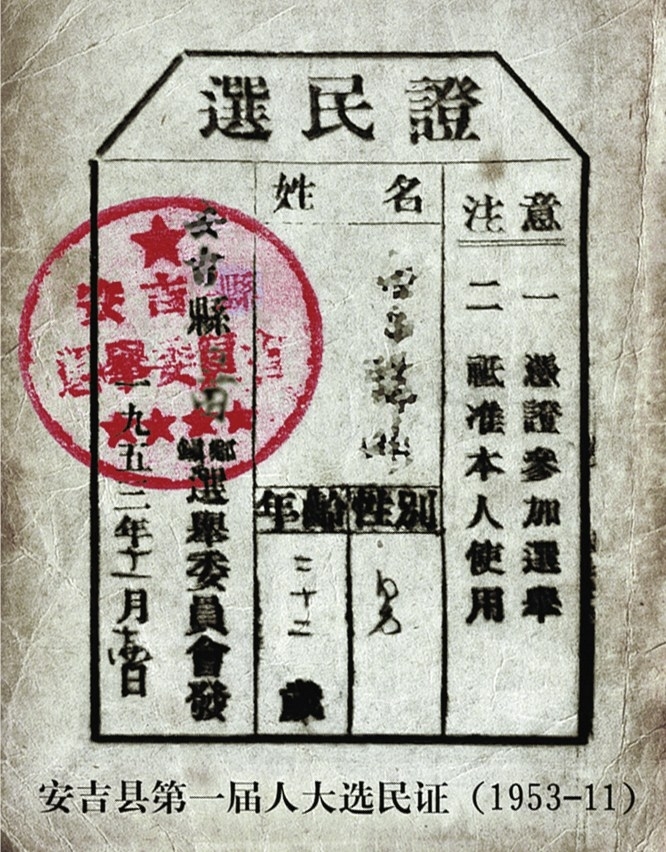 選民證
注意
一 憑證參加選舉
二 祗准本人使用
姓名
性別
年齡
二十二歲
安吉縣
鄉鎮選舉委員會發
一九五三年十一月 日
安吉縣
選舉委員會
安吉县第一届人大选民证（1953-11）